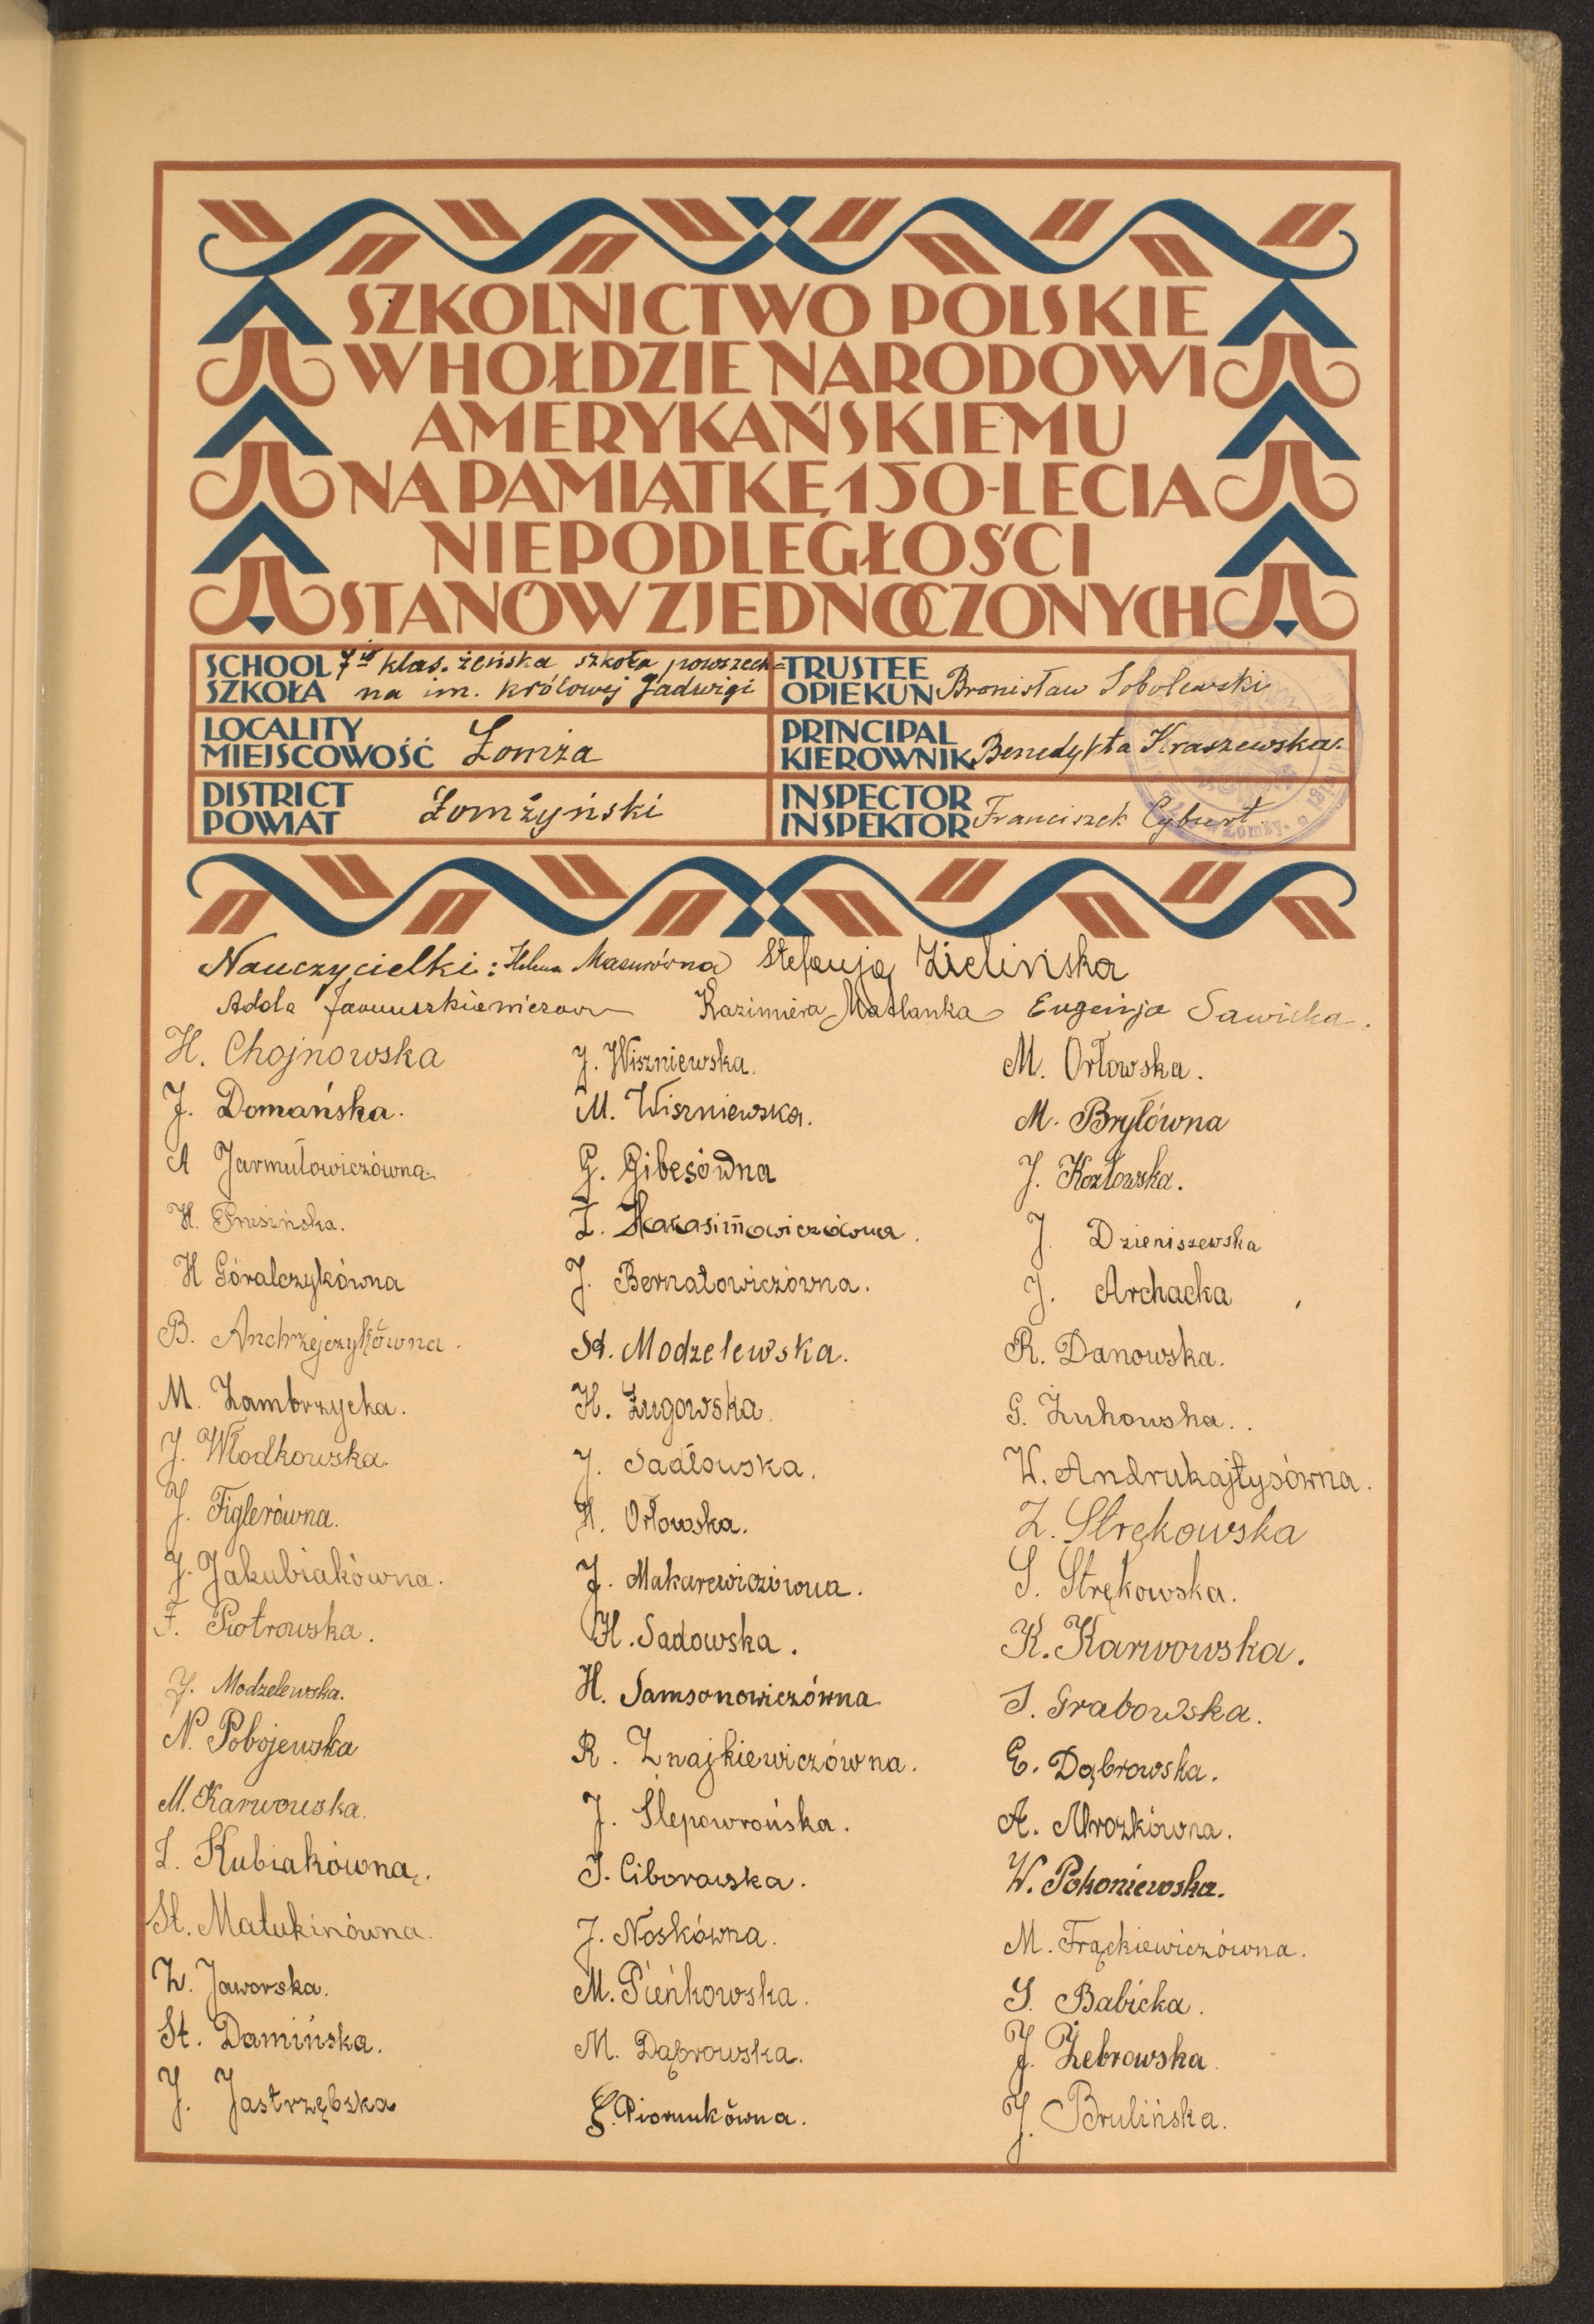 SZKOLNICTWO POLSKIE
W HOŁDZIE NARODOWI
AMERYKAŃSKIEMU
NA PAMIĄTKĘ 150-LECIA
NIEPODLEGŁOŚCI
STANÓW ZJEDNOCZONYCH
SCHOOL SZKOŁA 7io klas. żeńska szkoła powszech=
na im. królowej Jadwigi
TRUSTEE OPIEKUN Bronisław Sobolewski
LOCALITY MIEJSCOWOŚĆ Łomża
PRINCIPAL KIEROWNIK Benedykta Kraszewska.
DISTRICT POWIAT Łomżyński
INSPECTOR INSPEKTOR Franciszek Cybust
Nauczycielki: Helena Mazurówna Stefanja Zielińska
Adela Januszkiewiczowa Kazimiera Matlanka Eugenja Sawicka.
H. Chojnowska
J. Domańska.
A Jarmułowiczówna.
H. Prusińska.
H Góralczykówna
B. Andrzejczykówna.
M. Zambrzycka.
J. Włodkowska.
J. Figlerówna.
J. Jakubiakówna.
F. Piotrowska.
J. Modzelewska.
N. Pobojewska
M. Karwowska.
L. Kubiakówna.
St. Matukinówna.
Z. Jaworska.
St. Damińska.
J. Jastrzębska
J. Wiszniewska.
M. Wiszniewska.
G. Gibesówna
Z. Harasimowiczówna.
J. Bernatowiczówna.
St. Modzelewska.
H. Żugowska.
J. Sadłowska.
H. Orłowska.
J. Makarewiczówna.
H. Sadowska.
H. Samsonowiczówna
R. Znajkiewiczówna.
J. Ślepowrońska.
J. Ciborowska.
J. Noskówna.
M. Pieńkowska.
M. Dąbrowska.
E. Piorunkówna.
M. Orłowska.
M. Bryłówna
J. Kozłowska.
J. Dzieniszewska
J. Archacka
R. Danowska.
G. Żukowska.
W. Andrukajtysówna.
Z. Strękowska
S. Strękowska.
K. Karwowska.
S. Grabowska.
E. Dąbrowska.
A. Mrozkówna.
W. Pokoniewska.
M. Frąckiewiczówna.
S. Babicka.
J. Żebrowska.
J. Brulińska.